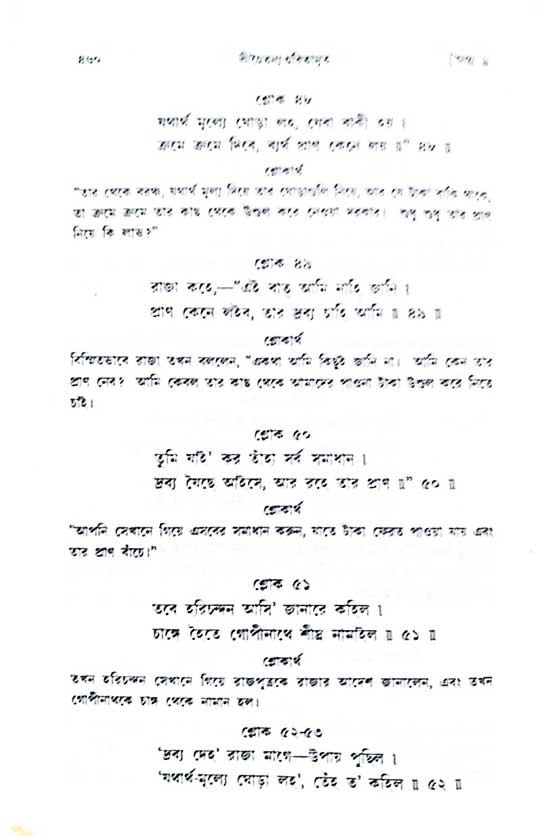 ৪৬০ শ্রীচৈতন্য চরিতামৃত
শ্লোক ৪৮
যথার্থ মূল্যে ঘোড়া লহ, যেবা বাকী হয় ।
ক্রমে ক্রমে দিবে, ব্যর্থ প্রাণ কেনে লয় ॥" ৪৮ ॥
শ্লোকার্থ
"তার থেকে বরঞ্চ, যথার্থ মূল্য দিয়ে তার ঘোড়াগুলি নিয়ে, আর যে টাকা বাকি থাকে,
তা ক্রমে ক্রমে তার কাছ থেকে উশুল করে নেওয়া দরকার। শুধু শুধু তার প্রাণ
নিয়ে কি লাভ?"
শ্লোক ৪৯
রাজা কহে,—"এই বাত্ আমি নাহি জানি ।
প্রাণ কেনে লইব, তার দ্রব্য চাহি আমি ॥ ৪৯ ॥
শ্লোকার্থ
বিস্মিতভাবে রাজা তখন বললেন, "একথা আমি কিছুই জানি না। আমি কেন তার
প্রাণ নেব? আমি কেবল তার কাছ থেকে আমাদের পাওনা টাকা উশুল করে নিতে
চাই।
শ্লোক ৫০
তুমি যাই' কর তাঁহা সর্ব সমাধান ।
দ্রব্য যৈছে আইসে, আর রহে তার প্রাণ ॥" ৫০ ॥
শ্লোকার্থ
"আপনি সেখানে গিয়ে এসবের সমাধান করুন, যাতে টাকা ফেরত পাওয়া যায় এবং
তার প্রাণ বাঁচে।"
শ্লোক ৫১
তবে হরিচন্দন আসি' জানারে কহিল ।
চাঙ্গে হৈতে গোপীনাথে শীঘ্র নামাইল ॥ ৫১ ॥
শ্লোকার্থ
তখন হরিচন্দন সেখানে গিয়ে রাজপুত্রকে রাজার আদেশ জানালেন, এবং তখন
গোপীনাথকে চাঙ্গ থেকে নামান হল।
শ্লোক ৫২-৫৩
'দ্রব্য দেহ' রাজা মাগে—উপায় পুছিল ।
'যথার্থ-মূল্যে ঘোড়া লহ', তেঁহ ত' কহিল ॥ ৫২ ॥